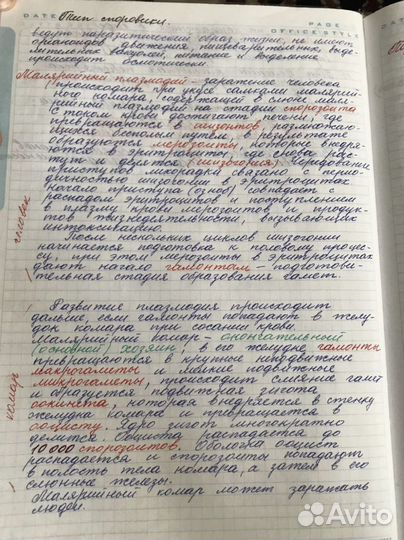 DATE
PAGE
OFFICE STYLE
DATE
Тип споровики.
ведут паразитический образ жизни, не имеют
органоидов движения, пищеварительных, выде-
лительных вакуолей, питание и выделение
происходит осмотически.
Малярийный плазмодий - заражение человека
происходит при укусе самками малярий-
ного комара, содержащей в слюне маля-
рийный плазмодий на стадии спорозоита
С током крови достигают печени, где
превращаются в шизонтов, размножаю-
щихся бесполым путём, в результате
образуются мерозоиты, которые внедря-
ются в эритроциты, где снова рас-
тут и делятся (шизогония). Чередование
приступов лихорадки связано с перио-
дичностью шизогонии в эритроцитах
Начало приступа (озноб) совпадает с
распадом эритроцитов и поступлением
в плазму крови мерозоитов и продук-
тов жизнедеятельности, вызывающих
интоксикацию.
После нескольких циклов шизогонии
начинается подготовка к половому процес-
су, при этом мерозоиты в эритроцитах
дают начало гамонтам - подготови-
тельная стадия образования гамет.
человек
Развитие плазмодия происходит
дальше, если гамонты попадают в желу-
док комара при сосании крови.
Малярийный комар - окончательный
(основной) хозяин, в его желудке гамонты
превращаются в крупные неподвижные
макрогаметы и мелкие подвижные
микрогаметы, происходит слияние гамет
и образуется подвижная зигота
оокинета, которая внедряется в стенку
желудка комара и превращается в
ооцисту. Ядро зигот многократно
делится. Ооциста распадается до
10 000 спорозоитов. Оболочка ооцист
распадается и спорозоиты попадают
в полость тела комара, а затем в его
слюнные железы.
Малярийный комар может заражать
людей.
комар
Avito